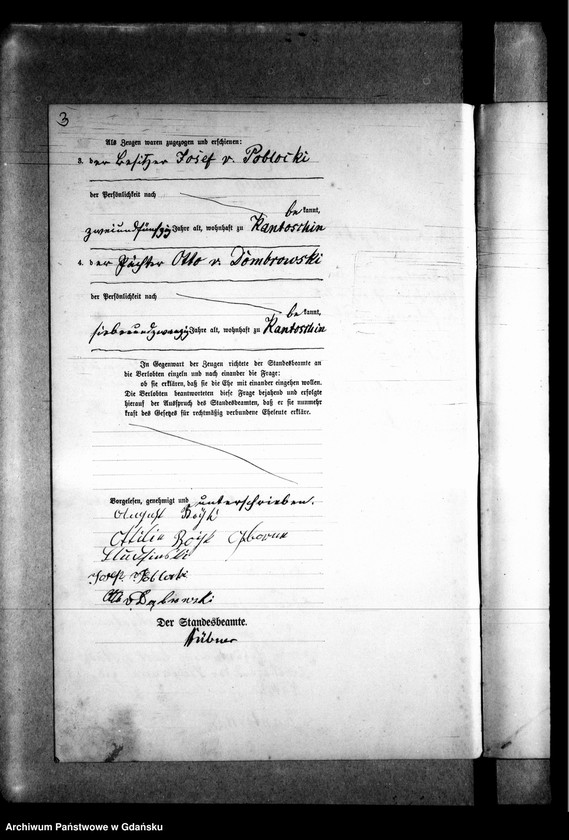 3
Als Zeugen waren zugezogen und erschienen:
3. der Besitzer Josef v. Poblocki
der Persönlichkeit nach
be kannt,
zweiundfünfzig Jahre alt, wohnhaft zu Kantoschin
4. der Pächter Otto v. Dombrowski
der Persönlichkeit nach
be kannt,
siebenundzwanzig Jahre alt, wohnhaft zu Kantoschin
In Gegenwart der Zeugen richtete der Standesbeamte an
die Verlobten einzeln und nach einander die Frage:
ob sie erklären, daß sie die Ehe mit einander eingehen wollen.
Die Verlobten beantworteten diese Frage bejahend und erfolgte
hierauf der Ausspruch des Standesbeamten, daß er sie nunmehr
kraft des Gesetzes für rechtmäßig verbundene Eheleute erkläre.
Vorgelesen, genehmigt und unterschrieben.
August
Ottilie geborene
Josef Poblocki
Otto v Dąbrowski
Der Standesbeamte.
Hübner
Archiwum Państwowe w Gdańsku